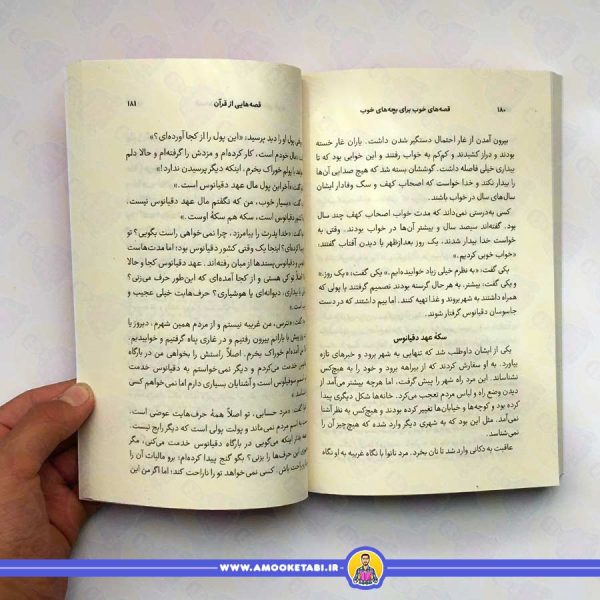 ۱۸۰
قصه‌های خوب برای بچه‌های خوب
بیرون آمدن از غار احتمال دستگیر شدن داشت. یاران غار خسته
بودند و دراز کشیدند و کم‌کم به خواب رفتند و این خوابی بود که تا
بیداری خیلی فاصله داشت. گوششان بسته شد که هیچ صدایی آن‌ها
را بیدار نکند و خدا خواست که اصحاب کهف و سگ وفادار ایشان
سال‌های سال در خواب باشند.
کسی به‌درستی نمی‌داند که مدت خواب اصحاب کهف چند سال
بود. گفته‌اند سیصد سال و بیشتر آن‌ها در خواب بودند. وقتی به
خواست خدا بیدار شدند، یک روز بعدازظهر با دیدن آفتاب گفتند:
«خواب خوبی کردیم.»
یکی گفت: «به نظرم خیلی زیاد خوابیده‌ایم.» یکی گفت: «یک روز.»
و یکی گفت: بیشتر. به هر حال گرسنه بودند تصمیم گرفتند با پولی که
همراه داشتند به شهر بروند و غذا تهیه کنند. اما بیم داشتند که در دست
جاسوسان دقیانوس گرفتار شوند.
سکهٔ عهد دقیانوس
یکی از ایشان داوطلب شد که تنهایی به شهر برود و خبرهای تازه
بیاورد. به او سفارش کردند که از بیراهه برود و خود را به هیچ‌کس
نشناساند. این مرد راه شهر را پیش گرفت. اما هرچه بیشتر می‌آمد از
دیدن وضع راه و لباس مردم تعجب می‌کرد. خانه‌ها شکل دیگری پیدا
کرده بود و کوچه‌ها و خیابان‌ها تغییر کرده بودند و هیچ‌کس به نظر آشنا
نمی‌آمد. مثل این بود که به شهری دیگر وارد شده که هیچ‌چیز آن را
نمی‌شناسد.
عاقبت به دکانی وارد شد تا نان بخرد. مرد نانوا با نگاه غریبه به او نگاه
قصه‌هایی از قرآن
۱۸۱
پول او را دید پرسید: «این پول را از کجا آورده‌ای؟»
مال خودم است، کار کرده‌ام و مزدش را گرفته‌ام و حالا دلم
پولم خوراک بخرم. اینکه دیگر پرسیدن ندارد!»
گفت: «آخر این پول مال عهد دقیانوس است.»
گفت: «بسیار خوب، من که نگفتم مال عهد دقیانوس نیست.
دقیانوس است، سکه هم سکهٔ اوست.»
گفت: «خدا پدرت را بیامرزد، چرا نمی‌خواهی راست بگویی؟ تو
پیدا کرده‌ای؟ اینجا یک وقتی کشور دقیانوس بود؛ اما مدت‌هاست
و دقیانوس‌پسندها از میان رفته‌اند. عهد دقیانوس کجا و حالا
اصلاً تو کی هستی و از کجا آمده‌ای که این‌طور حرف می‌زنی؟
بیداری، دیوانه‌ای یا هوشیاری؟ حرف‌هایت خیلی عجیب و
گفت: «نترس، من غریبه نیستم و از مردم همین شهرم، دیروز یا
با یارانم بیرون رفتیم و در غاری پناه گرفتیم و خوابیدیم.
آمده‌ام خوراک بخرم. اصلاً راستش را بخواهی من در بارگاه
خدمت می‌کردم و دیگر نمی‌خواستم به دقیانوس خدمت
است و آشنایان بسیاری دارم اما نمی‌خواهم کسی
گفت: «مرد حسابی، تو اصلاً همهٔ حرف‌هایت عوضی است.
اسم مردم نمی‌ماند و پولت پولی است که دیگر رایج نیست.
اینکه می‌گویی در بارگاه دقیانوس خدمت می‌کنی، مگر
این حرف‌ها را بزنی؟ بگو گنج پیدا کرده‌ام؛ برو مالیات آن را
راحت باش. کسی نمی‌خواهد تو را ناراحت کند؛ اما اگر من این
WWW.AMOOKETABI.IR